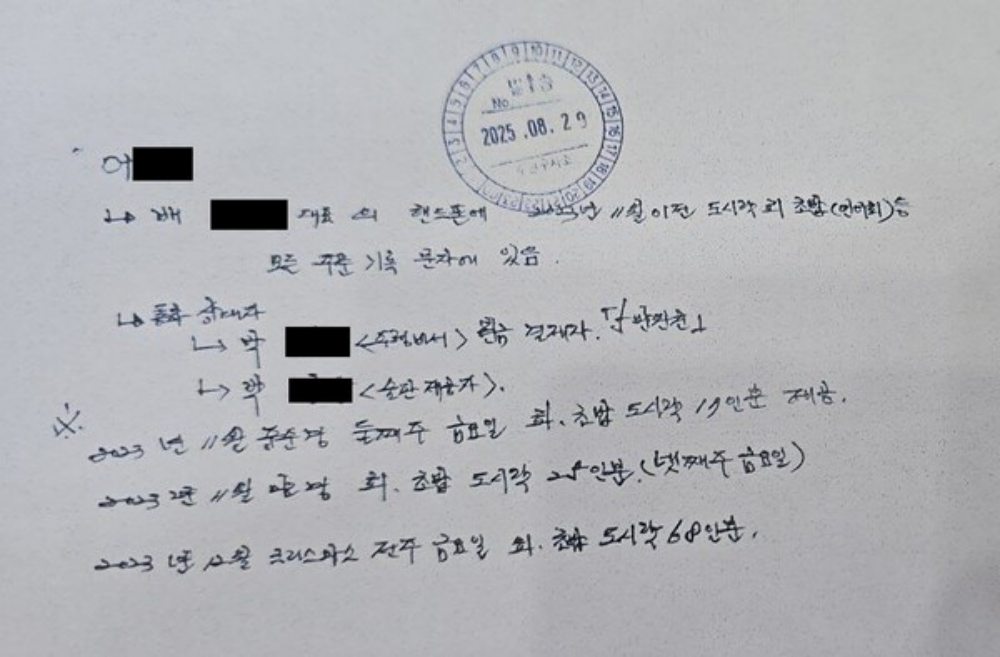 No
2025.08.29
↳ 배 대표의 핸드폰에 2023년 11월 이전 도시락 회 초밥(연어회)등
모든 주문 기록 문자에 있음.
↳ 통화 상대자
↳ 박 <수행비서> 현금 결재자.
↳ 박 <술판 제공자>.
※
2023년 11월 중순경 둘째주 금요일 회. 초밥 도시락 인분 제공.
2023년 11월 말경 회. 초밥 도시락 인분. (넷째주 금요일)
2023년 12월 크리스마스 전주 금요일 회. 초밥 도시락 68인분.